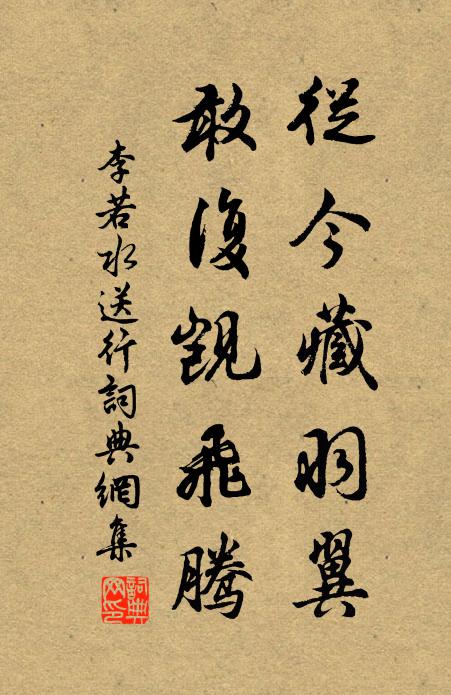 從今藏羽翼
敢復覬飛騰
李若水送行詞典網集
詞典网印